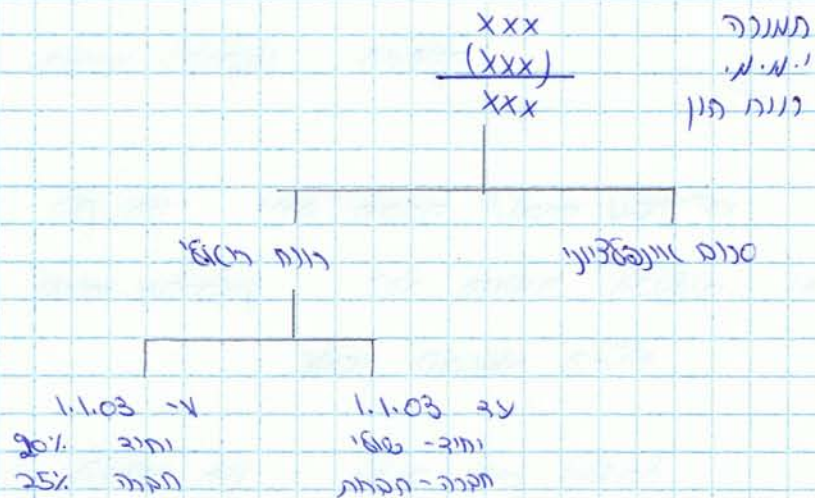 תמורה xxx
י.מ.מ. (xxx)
רווח הון xxx
סכום אינפלציוני
רווח ריאלי
עד 1.1.03
יחיד - שולי
חברה - חברות
מ- 1.1.03
יחיד 20%
חברה 25%